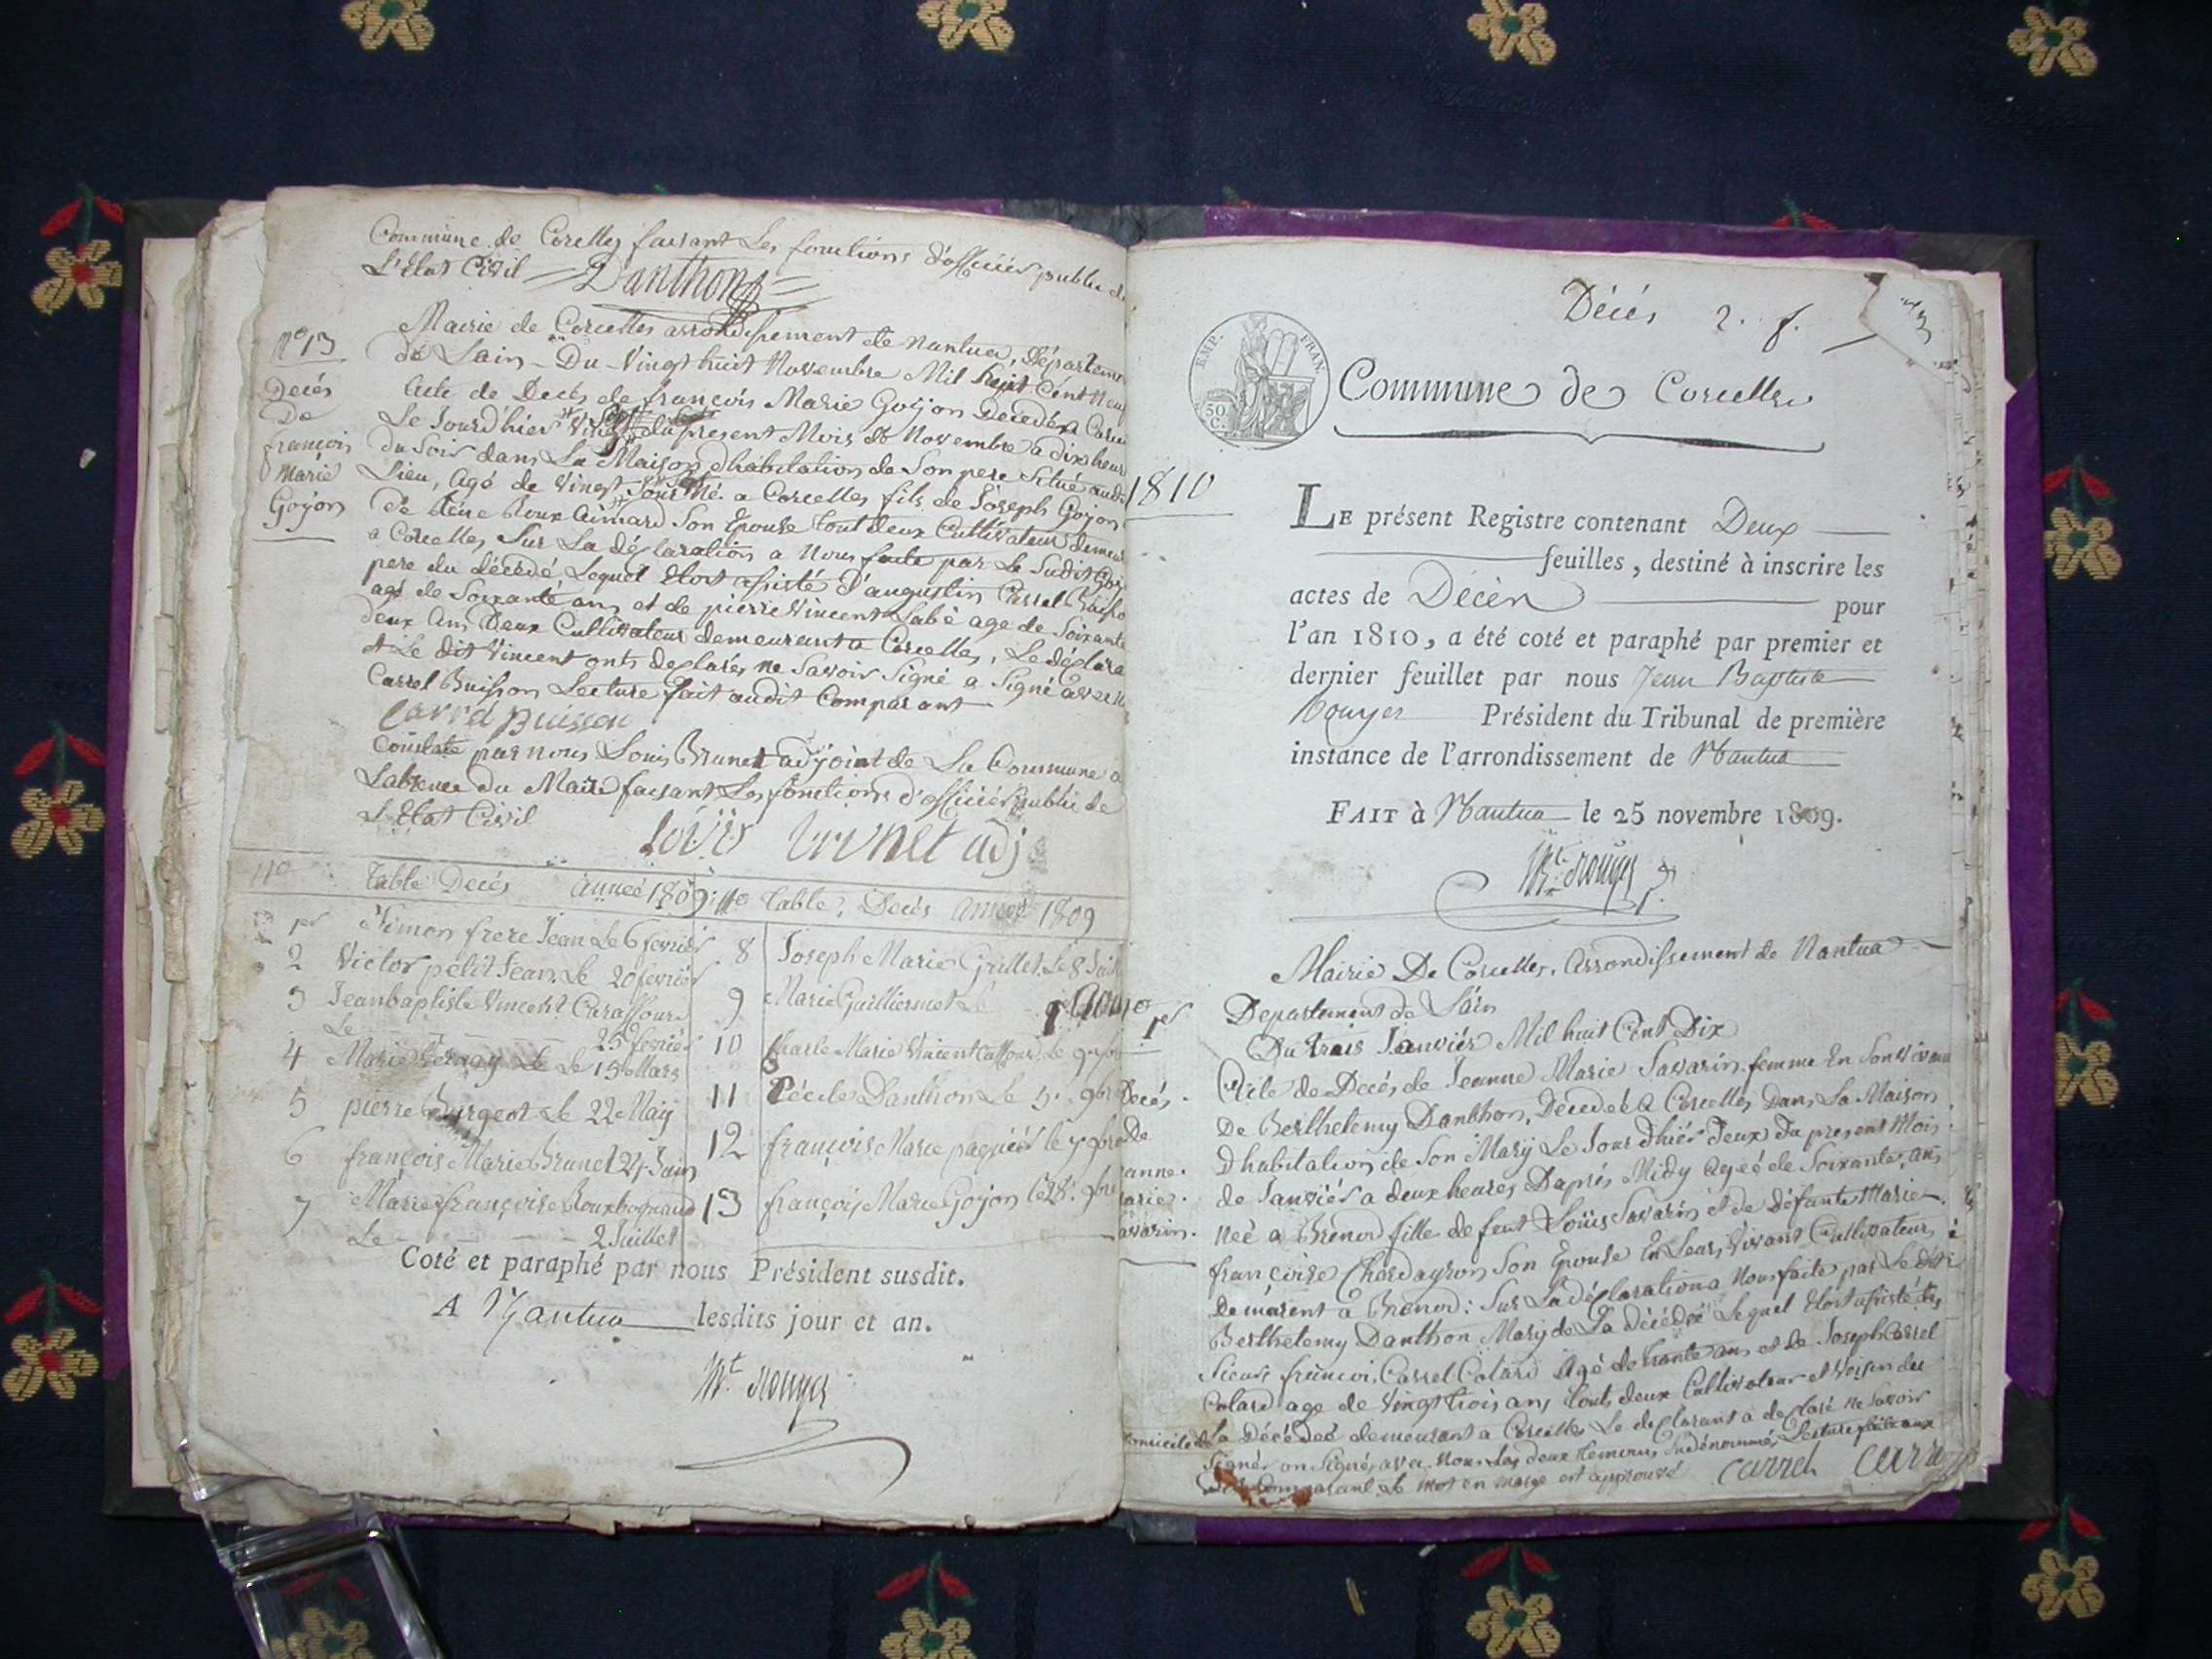 Commune de Corcelles faisant Les fonctions d'officier public de
L'Etat Civil Danthon
Mairie de Corcelles arrondissement de Nantua, Départeme
N° 13
de Lain - Du Vingt huit Novembre Mil huit Cent neuf
Decés
De
françois
Marie
Goyon
Acte de Decés de françois Marie Goyon Decedé a Corce
Le Jourdhier Vingt Sept du present Mois de Novembre a dix heur
du Soir dans La Maison dhabitation de Son pere Situé audi
Lieu, Agé de Vingt Né a Corcelles fils de Joseph Goyon
De Roux Aimard Son Epouse tout deux Cultivateur demeur
a Corcelles, Sur La déclaration a Nous faite par Le Sudit Goy
pere du décédé, Lequel Etoit assisté D'augustin Carrel Buisso
agé de Soixante ans et de pierre Vincent Labé age de Soixante
deux ans Deux Cultivateur demeurant a Corcelles, Le déclara
et Le dit Vincent onts declarés ne Savoir Signé a Signé avec n
Carrel Buisson Lecture fait audit Comparant
Carrel Buisson
Constaté par nous Louis Brunet adjoint de La Commune a
Labsence du Maire faisant Les fonctions d'officier public de
L'Etat Civil
Loüis brunet adj
N° Table Decés année 1809
1er Simon frere Jean Le 6 fevrier
2 Victor petit Jean Le 20 fevrier
3 Jeanbaptiste Vincent
Le 25 fevrier
4 Marie Le 15 Mars
5 pierre Burgeot Le 22 Maij
6 françois Marie Brunet 24 Juin
7 Marie françoise Roux
Le 2 Juillet
N° Table, Decés année 1809
8 Joseph Marie Grillet, Le 8
9 Marie Guilliermet Le
10 Charle Marie Vincent Le
11 Cécile Danthon Le 5. 9bre
12 françois Marie paquier le 7 9bre
13 françois Marie Goyon le 28. 9bre
Coté et paraphé par nous Président susdit.
A Nantua lesdits jour et an.
Bt. Rouyer
Décés 2. f.
EMP. FRAN.
50 C.
Commune de Corcelles
1810
LE présent Registre contenant Deux
feuilles, destiné à inscrire les
actes de Décès pour
l'an 1810, a été coté et paraphé par premier et
dernier feuillet par nous Jean Baptiste
Rouyer Président du Tribunal de première
instance de l'arrondissement de Nantua
FAIT à Nantua le 25 novembre 1809.
Bt. Rouyer
Mairie De Corcelles, Arrondissement de Nantua
N° 1er
Departement de Lain
Du trois Janvier Mil huit Cent Dix
Decés
De
anne
arie
avarin
Acte de Decés de Jeanne Marie Savarin femme En Son vivan
De Berthelemy Danthon, Decedeé a Corcelles Dans La Maison
Dhabitation de Son Mary Le Jour dhier Deux du present Mois
de Janvier a deux heures Daprés Midy Ageé de Soixante, ans
neé a Brenod fille de feut Loüis Savarin et de Défunte Marie
françoise Chardeyron Son Epouse En Leurs Vivant Cultivateurs
demeurent a Brenod : Sur La déclaration a Nous faite par Le dit
Berthelemy Danthon Mary de La décédée Lequel Etoit assisté des
Sieurs françois Carrel Colard Agé de trante ans et de Joseph Carrel
Colard age de Vingt trois ans tous deux Cultivateur et Voisin du
domicile de la Décédeé demeurant a Corcelles Le declarant a declaré ne Savoir
Signér on Signé avec Nous Les deux temoins Sudénommés Lecture faite aux
Comparant Le mot en marge est approuvé carrel Carre